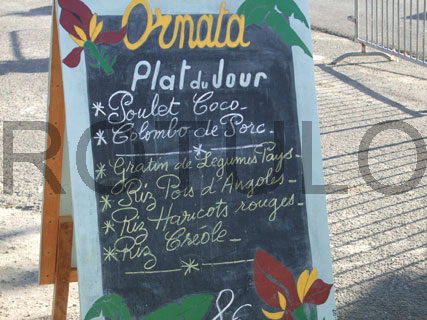 Ornata
Plat du Jour
* Poulet Coco -
* Colombo de Porc -
* Gratin de Légumes Pays -
* Riz Pois d'Angoles -
* Riz Haricots rouges -
* Riz Créole -
8€
ROTULO